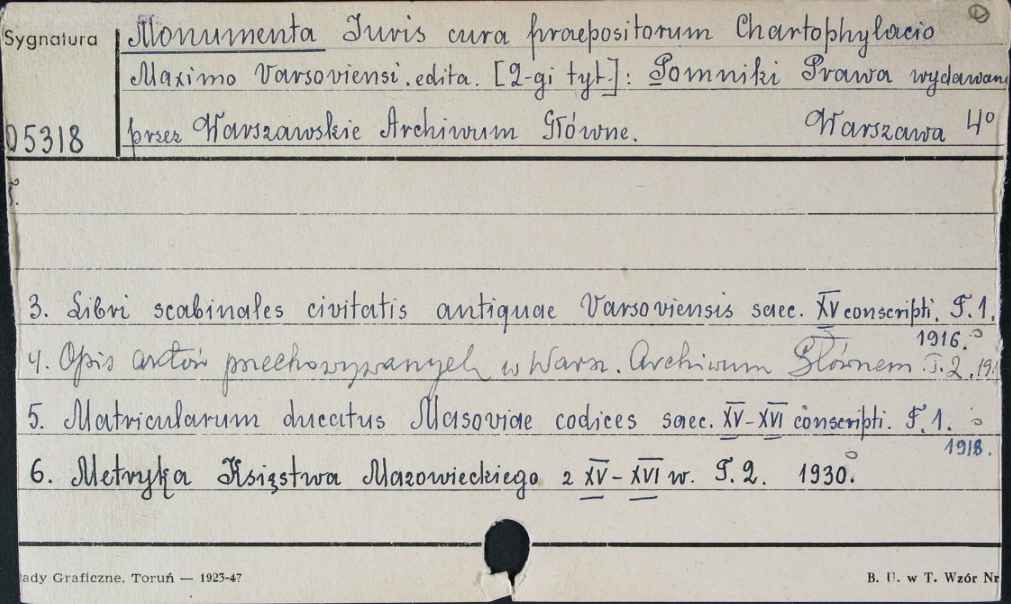 Sygnatura
Monumenta Iuris cura praepositorum Chartophylacio
Maximo Varsoviensi edita. [2-gi tyt.]: Pomniki Prawa wydawan
05318
przez Warszawskie Archiwum Główne. Warszawa 4°
T.
3. Libri scabinales civitatis antiquae Varsoviensis saec. XV conscripti. T. 1.
1916.
4. Opis aktów przechowywanych w Warsz. Archiwum Głównem. T. 2.
5. Matricularum ducatus Masoviae codices saec. XV-XVI conscripti. T. 1.
1918.
6. Metryka Księstwa Mazowieckiego z XV-XVI w. T. 2. 1930.
ady Graficzne, Toruń — 1923-47
B. U. w T. Wzór Nr